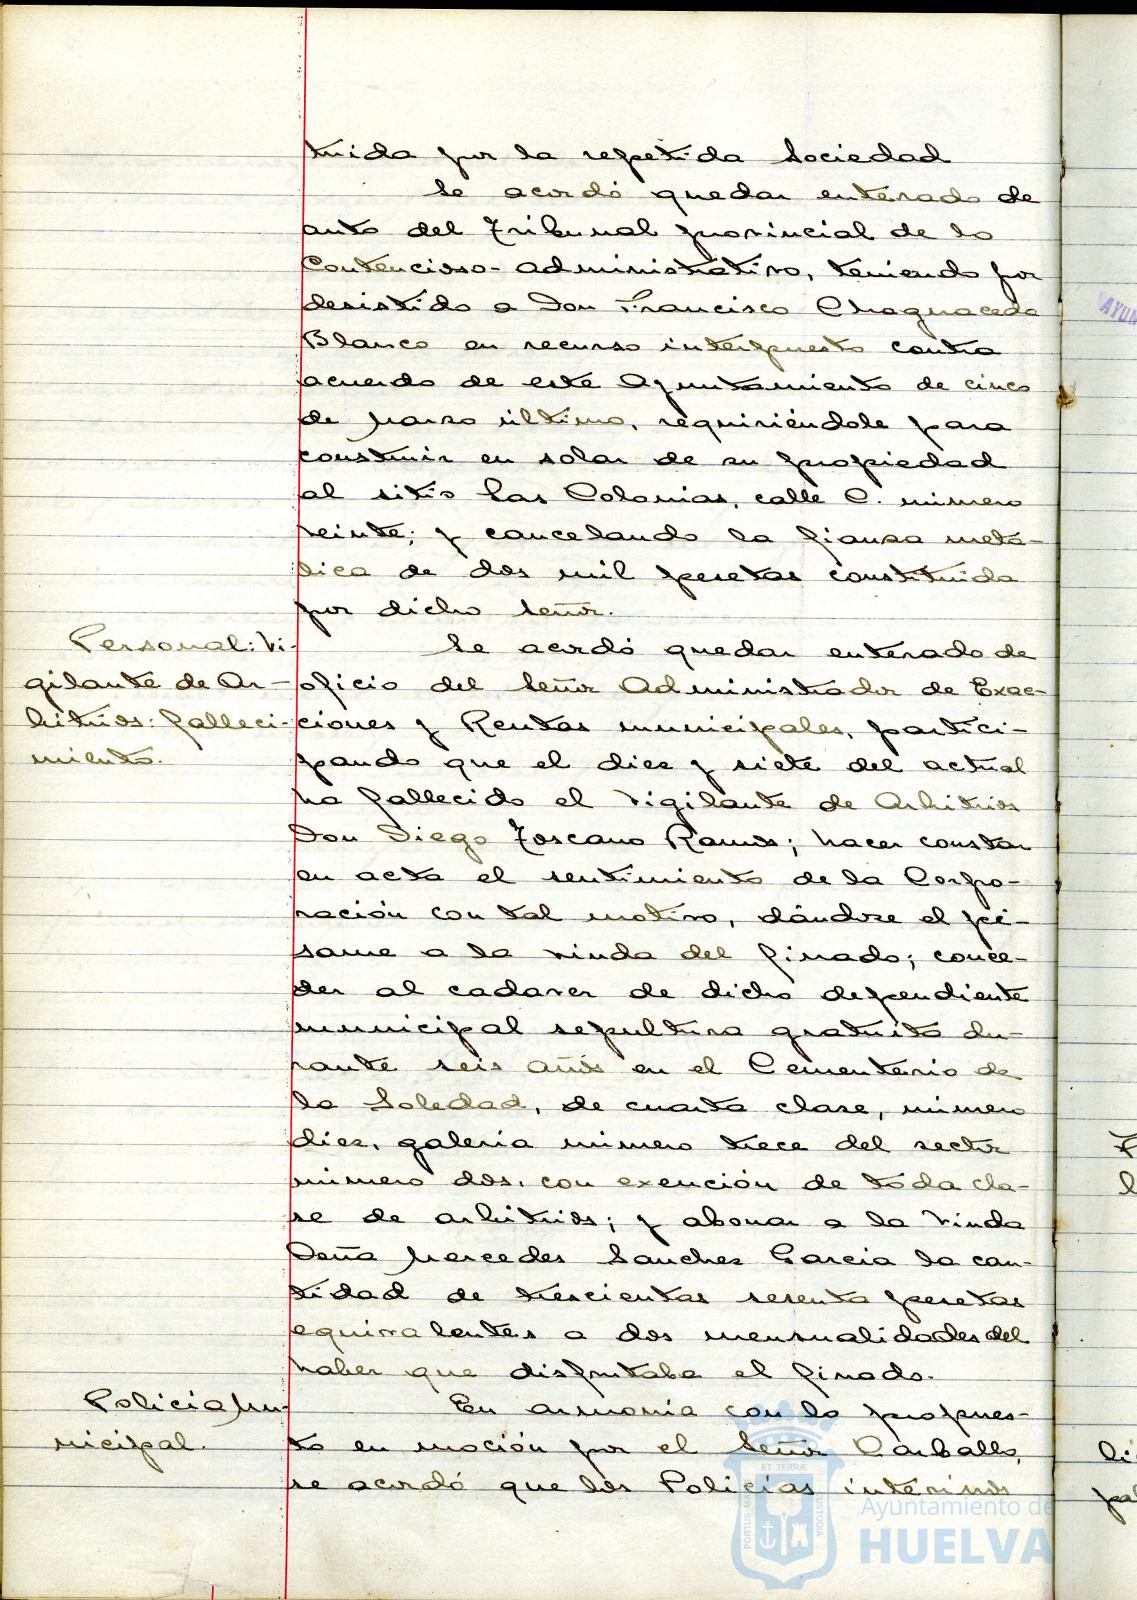 tuida por la repetida Sociedad
Se acordó quedar enterado de
auto del Tribunal provincial de lo
Contencioso-administrativo, teniendo por
desistido a Don Francisco Chaguaceda
Blanco en recurso interpuesto contra
acuerdo de este Ayuntamiento de cinco
de Marzo último, requiriéndole para
construir en solar de su propiedad
al sitio Las Colonias, calle C. número
veinte; y cancelando la fianza metá-
lica de dos mil pesetas constituida
por dicho Señor.
Personal: Vi-
gilante de Ar-
bitrios: falleci-
miento.
Se acordó quedar enterado de
oficio del Señor Administrador de Exac-
ciones y Rentas municipales, partici-
pando que el diez y siete del actual
ha fallecido el Vigilante de Arbitrios
Don Diego Toscano Ramos; hacer constar
en acta el sentimiento de la Corpo-
ración con tal motivo, dándose el pé-
same a la viuda del finado; conce-
der al cadaver de dicho dependiente
municipal sepultura gratuita du-
rante seis años en el Cementerio de
la Soledad, de cuarta clase, número
diez, galeria número trece del sector
número dos, con exención de toda cla-
se de arbitrios; y abonar a la Viuda
Doña Mercedes Sanchez Garcia la can-
tidad de trescientas sesenta pesetas
equivalentes a dos mensualidades del
haber que disfrutaba el finado.
Policia Mu-
nicipal.
En armonia con lo propues-
to en moción por el Señor Carballo,
se acordó que los Policías interinos
Ayuntamiento de
HUELVA